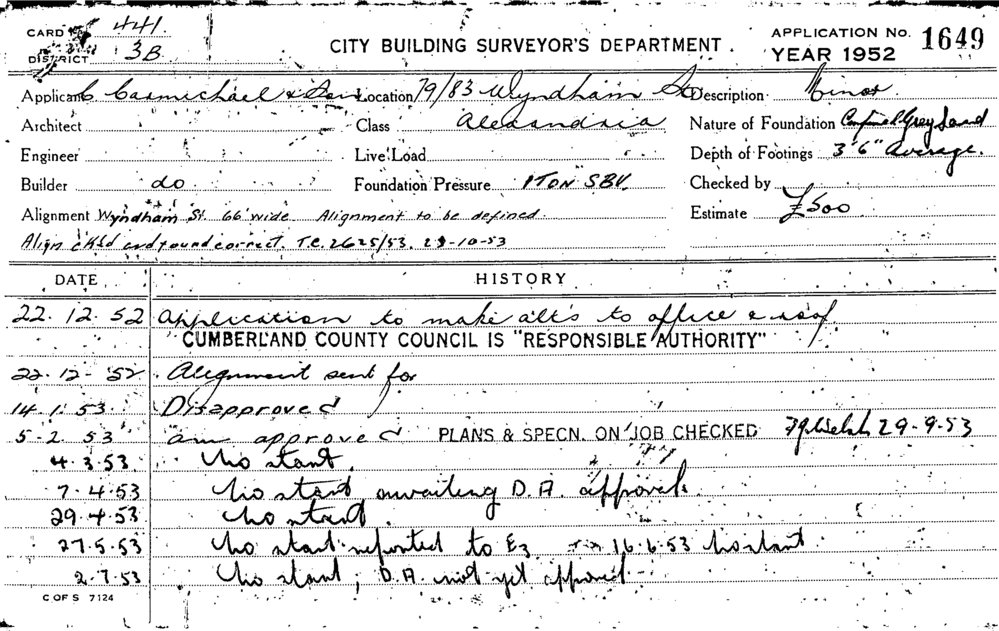 CARD No. 441.
DISTRICT 3B
CITY BUILDING SURVEYOR'S DEPARTMENT.
APPLICATION No. 1649
YEAR 1952
Applicant C Carmichael & Son Location 79/83 Wyndham St Description Minor
Architect Class Alexandria Nature of Foundation Confined Grey Sand
Engineer Live Load Depth of Footings 3'6" Average.
Builder do Foundation Pressure 1 TON SBV. Checked by
Alignment Wyndham St. 66' wide Alignment to be defined. Estimate £500
Align ck'd and found correct. T.C. 2625/53. 29-10-53
DATE HISTORY
22. 12. 52 Application to make alt's to office & roof
CUMBERLAND COUNTY COUNCIL IS "RESPONSIBLE AUTHORITY"
22-12-52 Alignment sent for
14. 1. 53 Disapproved
5-2. 53 am approved PLANS & SPECN. ON JOB CHECKED Welsh 29-9-53
4.3.53 No start.
7.4.53 No start awaiting D.A. approval.
29.4.53 No start.
27.5.53 No start reported to E3 16.6.53 No start
2.7.53 No start, D.A. not yet approved
C OF S 7124